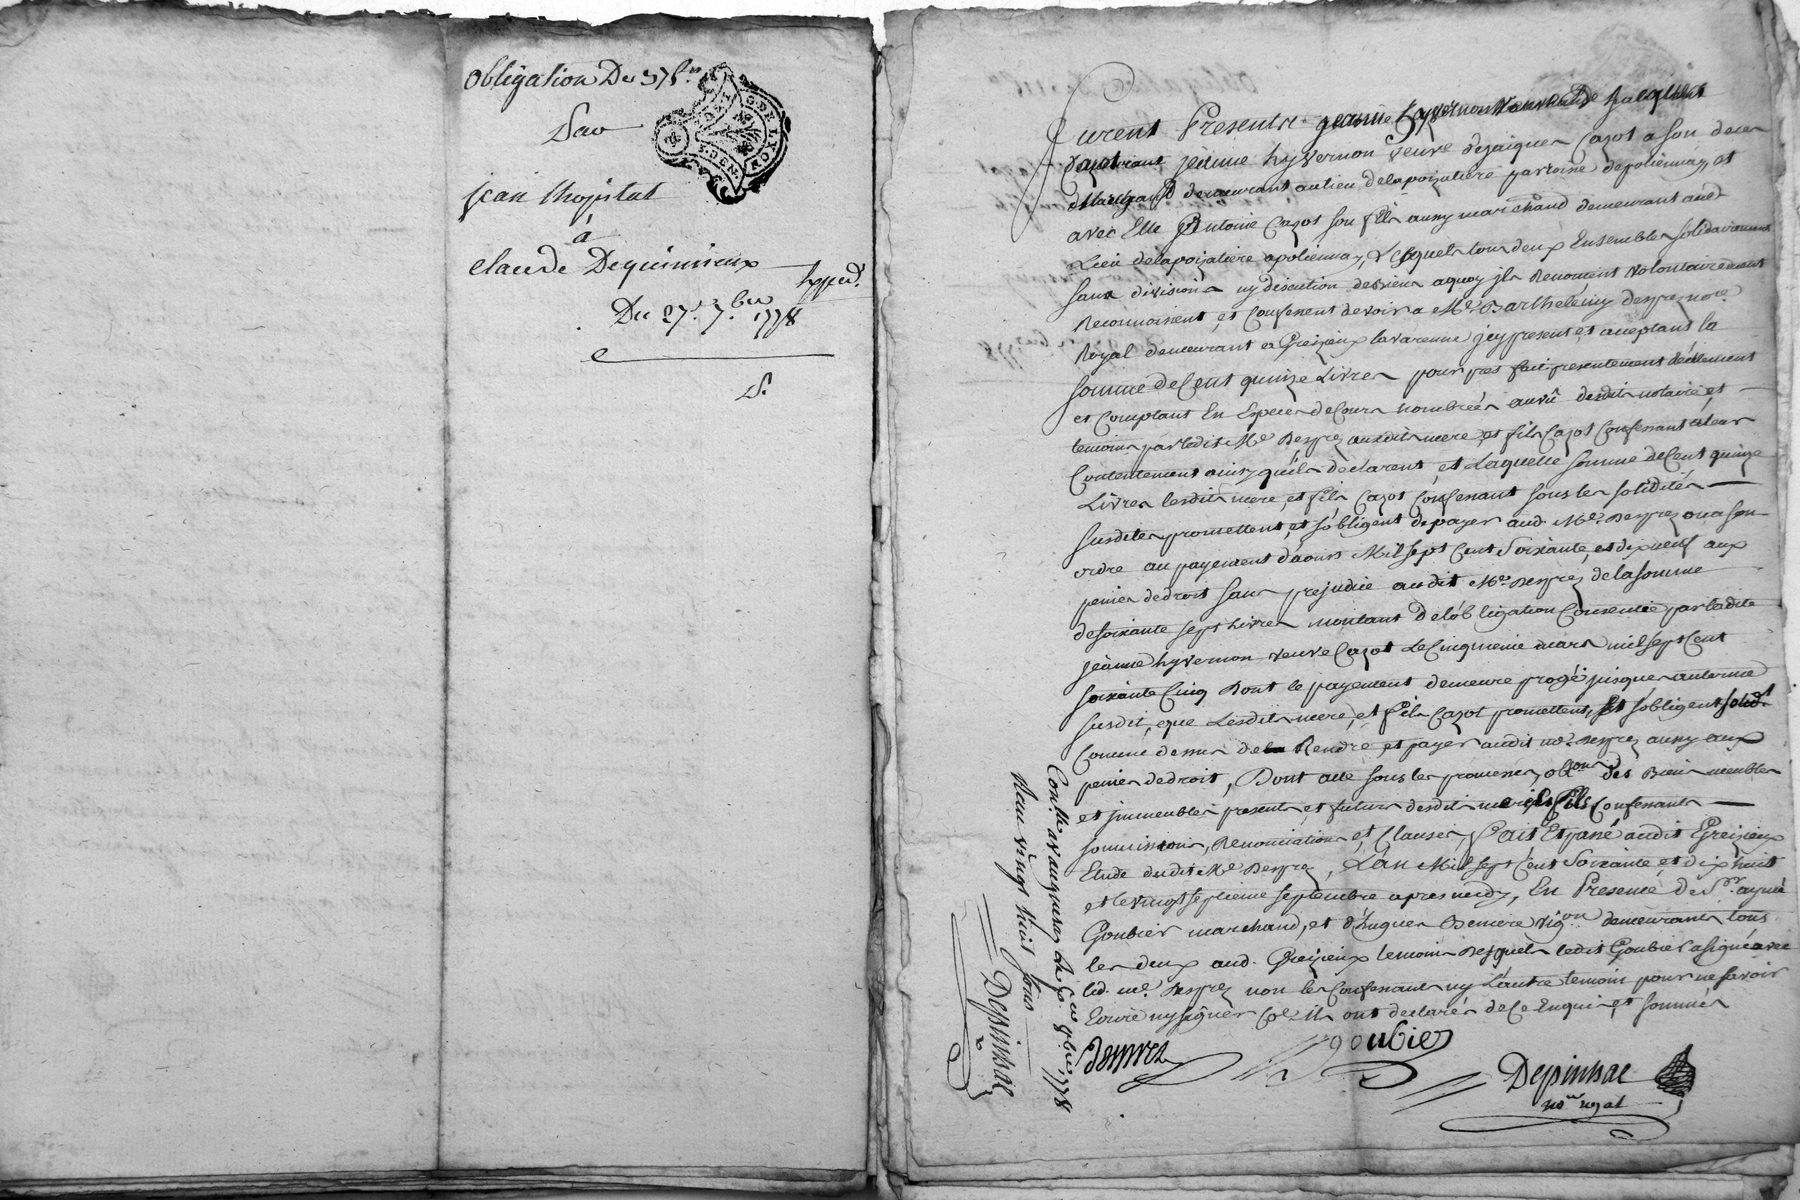 obligation De 375.ₜₜ
Par
jean thopital
a
claude Dequinsieux
hyped.
Du 27.e 7.bre 1778
D.
Furent Presents jeanne hyvernon veuve De jacques
Cazot jeanne hyvernon veuve dejaiques Cazot a son deces
Marchand demeurant au lieu delapoizatiere paroisse depoliennay, et
avec Elle Antoine Cazot son fils aussy marchand demeurant aud
Lieu delapoizatiere apoliennay, Lesquels tous deux Ensembles solidairement
sans division ny discution desbiens aquoy ils Renoncent volontairement
Reconnoissent, et Confessent devoir a Me. Barthelemy Desprez nore.
Royal demeurant a Greizieux lavarenne jcy present, et acceptant la
somme deCent quinze Livres pour pres fait presentement Réellement
et Comptant En Especes deCours nombrées auvû desdits notaire et
temoins parledit Me Desprez auxdits mere, et fils Cazot Confessants aleur
Contentement ainsy quils declarent, et Laquelle somme deCent quinze
Livres lesdits mere, et fils Cazot Confessants sous les solidités
susdites promettent, et s'obligent depayer aud. Me. Desprez ou a son
ordre au payement d'aoust Mil sept Cent Soixante, et dixneuf aux
peines dedroit sans prejudice audit Me. Desprez delasomme
desoixante sept Livres montant De l'obligation Consentie parladite
jeanne hyvernon veuve Cazot LeCinquieme mars mil sept Cent
soixante Cinq Dont le payement demeure progé jusques auterme
susdit, que Lesdits mere, et fils Cazot promettent, Et s'obligent solidt.
Comme dessus de Rendre et payer audit me. Desprez aussy aux
peines dedroit, Dont acte sous les promesses, oblon des Biens meubles
et jmmeubles presents, et futurs desdits mere, et fils Confessants
soumissions, Renonciations, et Clauses, Fait Et passé audit Greizieux
Etude dudit Me Desprez, L'an Mil sept Cent Soixante, et dix huit
et levingtseptieme septembre apres midy, En Presence de Sr. aymé
Goubier marchand, et d'hugues Bemere vigon demeurants tous
les deux aud. Greizieux temoins Desquels ledit Goubier asigné avec
led. me. Desprez non les Confessants ny L'autre temoin pour ne savoir
Ecrire ny signer Coe. ils ont declarés de Ce Enquis, et sommés
Desprez
goubier
Depinsac
nore royal
Contlle avaugneray le 9.bre 1778
Recu vingt huit sous
Depinsac